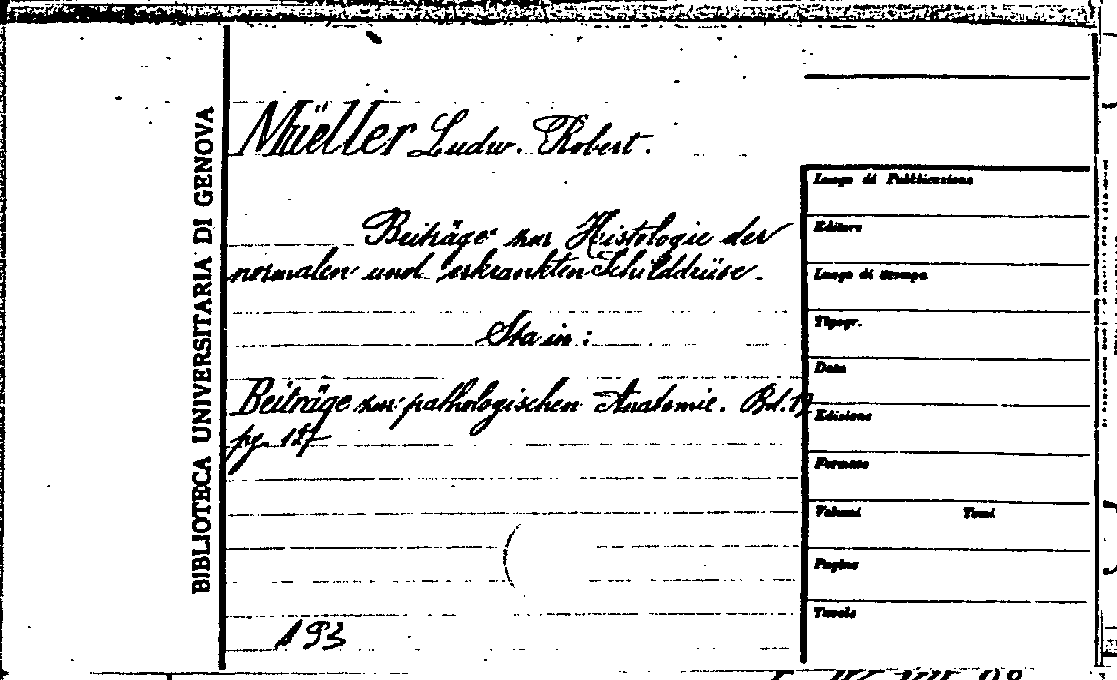 BIBLIOTECA UNIVERSITARIA DI GENOVA
Müller Ludw. Robert.
Beiträge zur Histologie der
normalen und erkrankten Schilddrüse.
Sta in:
Beiträge zur pathologischen Anatomie. Bd. 19
pg. 127
193
Luogo di Pubblicazione
Editore
Luogo di Stampa
Tipogr.
Data
Edizione
Formato
Volumi Tomi
Pagine
Tavole